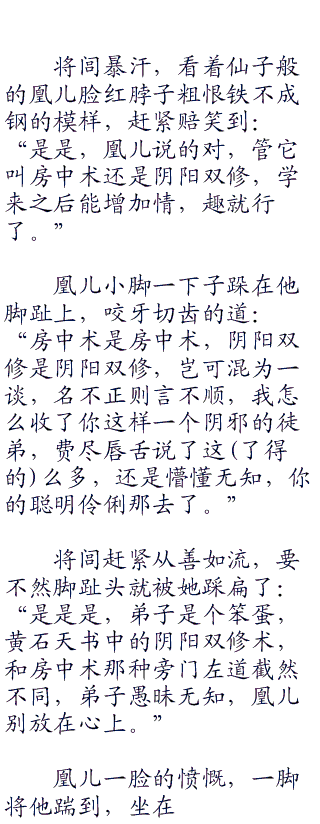 将闾暴汗，看着仙子般
的凰儿脸红脖子粗恨铁不成
钢的模样，赶紧赔笑到：
“是是，凰儿说的对，管它
叫房中术还是阴阳双修，学
来之后能增加情，趣就行
了。”
凰儿小脚一下子跺在他
脚趾上，咬牙切齿的道：
“房中术是房中术，阴阳双
修是阴阳双修，岂可混为一
谈，名不正则言不顺，我怎
么收了你这样一个阴邪的徒
弟，费尽唇舌说了这(了得
的)么多，还是懵懂无知，你
的聪明伶俐那去了。”
将闾赶紧从善如流，要
不然脚趾头就被她踩扁了：
“是是是，弟子是个笨蛋，
黄石天书中的阴阳双修术，
和房中术那种旁门左道截然
不同，弟子愚昧无知，凰儿
别放在心上。”
凰儿一脸的愤慨，一脚
将他踹到，坐在